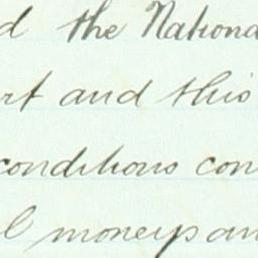 d the Nationa
rt and this
conditions con
l moneys an